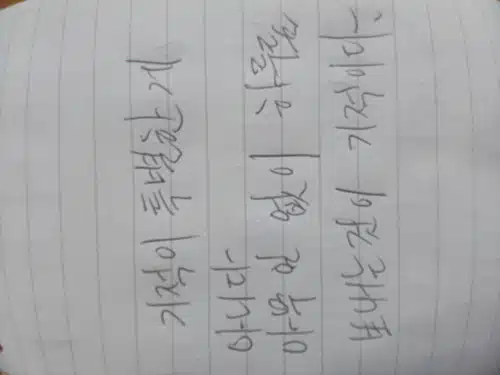 기적이 특별한 게
아니다.
아무 일 없이 하루를
보내는것이 기적이다.